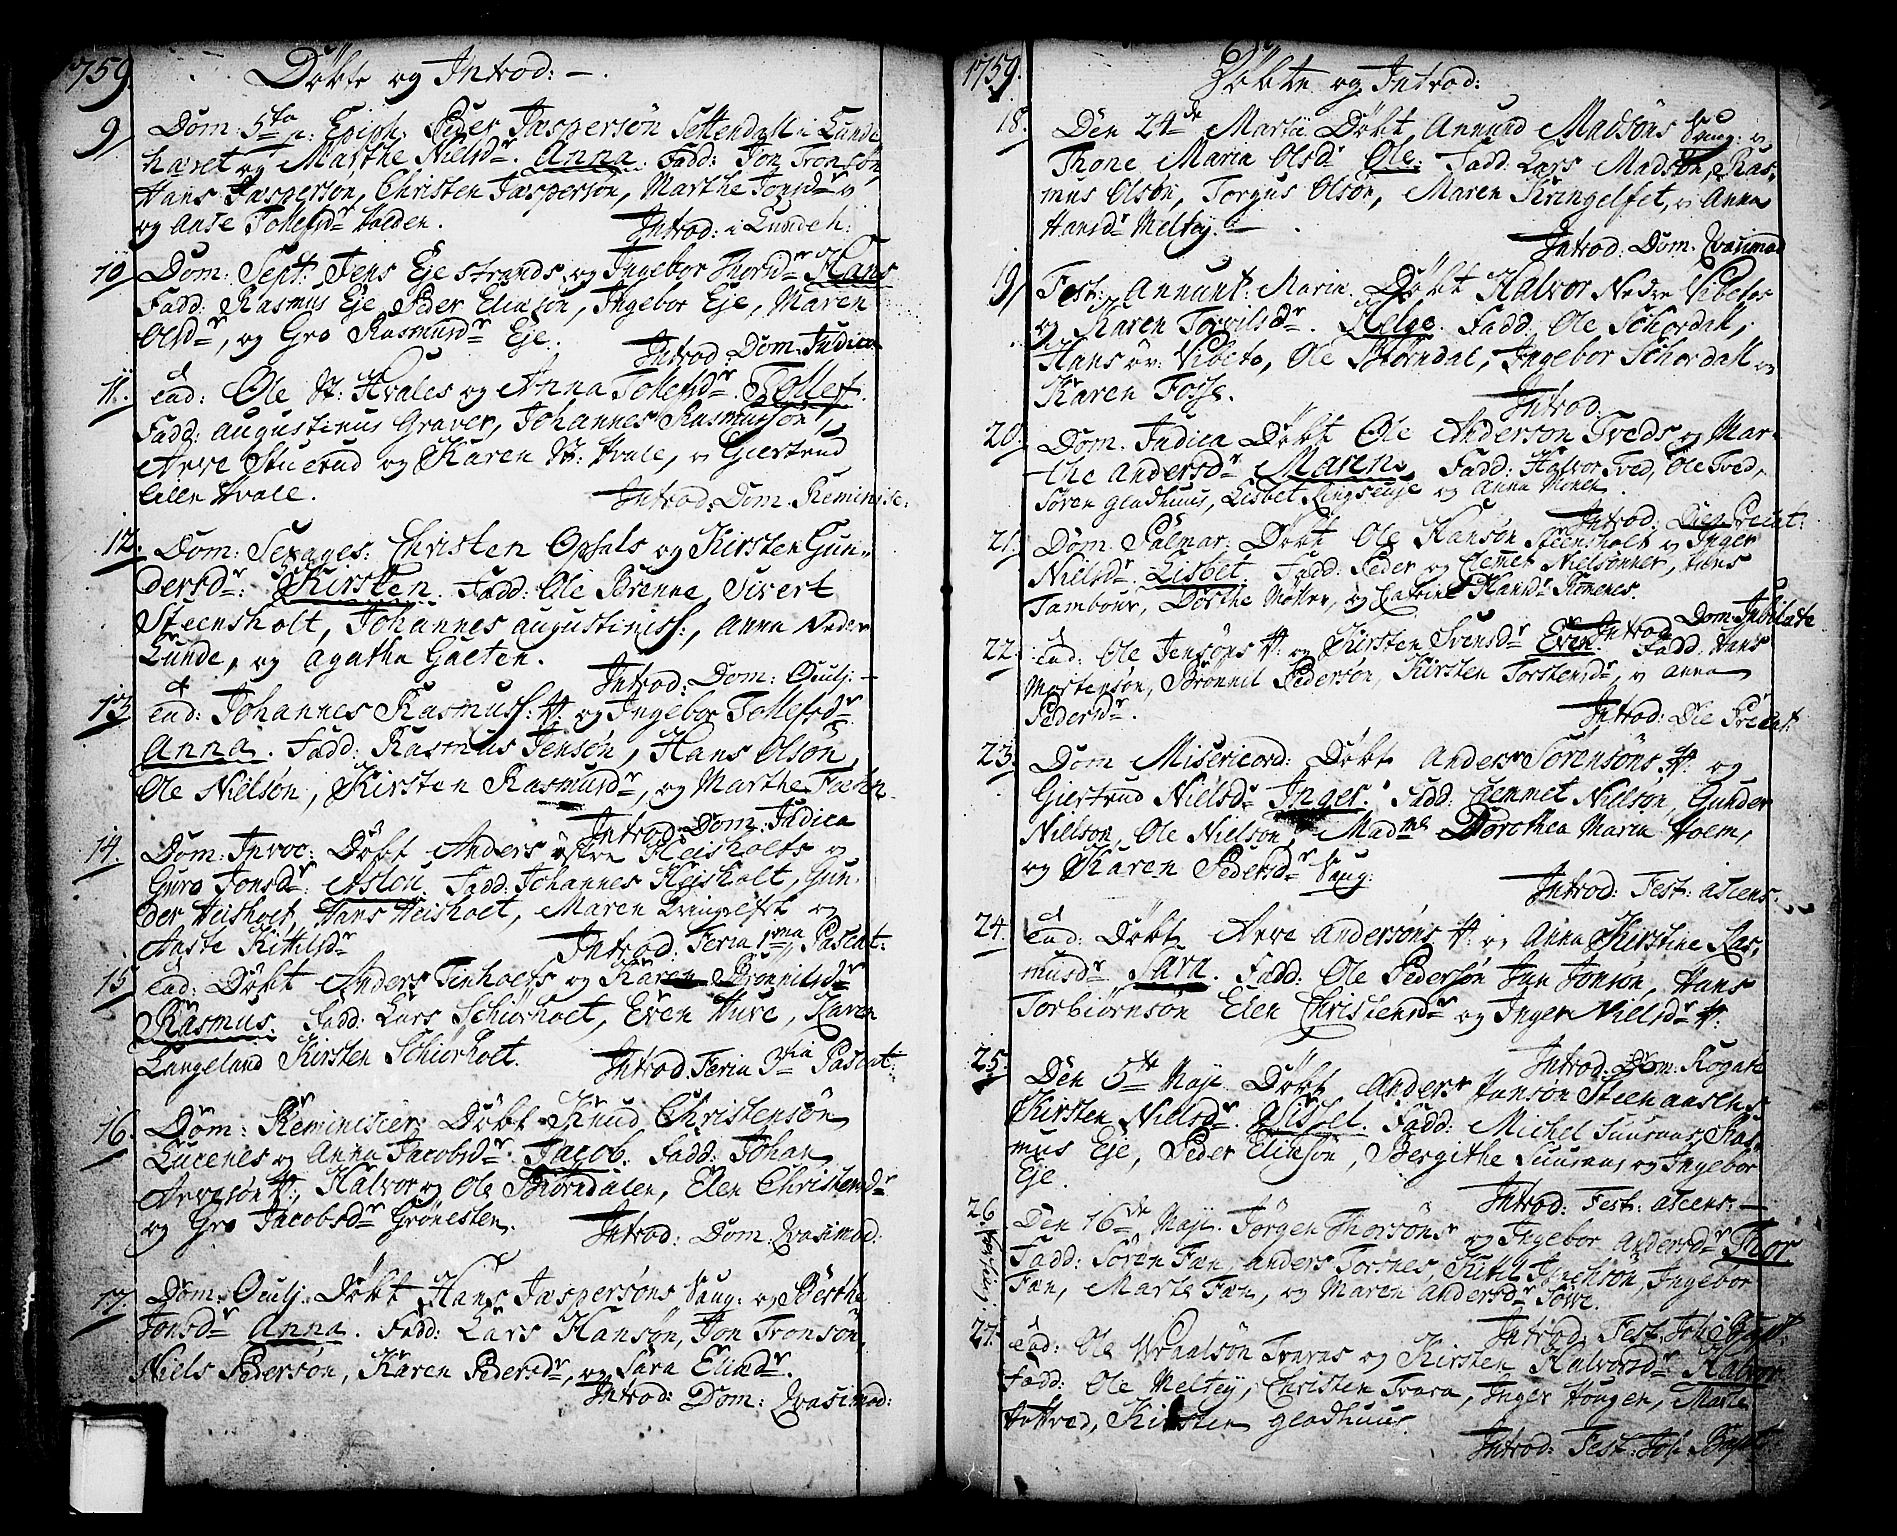 1759. Döbte og Introd: —.
9 Dom: 5ta p: Epiph: Peder Jaspersön Settendall i Lunde
häret og Marthe Nielsdr. Anna. Fadd: Jon Tronsön,
Hans Jaspersön, Christen Jaspersön, Marthe Jonsdr
og Anse Tollefsdr Holden. Introd: i Lundeh:
10 Dom: Sept: Jens Eje strands og Ingebor Thorsdr Hans
Fadd: Rasmus Eje, Peder Eliasön, Ingebor Eje, Maren
Olsdr, og Gro Rasmusdr Eje. Introd: Dom: Judica
11. Ead: Ole N: Hvales og Anna Tollefsdr. Tollef.
Fadd: Augustinus Graver, Johannes Rasmussön,
Arve Stuerud og Karen N: Hvale, og Giertrud
lille Hvale. Introd: Dom: Reminisc:
12. Dom: Sexages: Christen Opsals og Kirsten Gun-
dersdr: Kirsten. Fadd: Ole Brenne, Sivert
Steensholt, Johannes Augustiniss:, Anna Neder
Lunde, og Agatha Gaeten.
Introd: Dom: Oculj: —
13 Ead: Johannes Rasmuss: H: og Ingebor Tollefsdr.
Anna. Fadd: Rasmus Jensön, Hans Olsön,
Ole Nielsön, Kirsten Rasmusdr, og Marthe
Introd: Dom: Judica
14. Dom: Invoc: Döbt Anders östre Heisholts og
Guro Jonsdr: Aslou. Fadd: Johannes Heisholt, Gun-
der Heisholt, Hans Heisholt, Maren Kringelfet og
Anste Kittilsdr Introd: Feria 1ma Paschat:
15 Ead: Döbt Anders Tenholts og Karen Brönnilsdr
Rasmus. Fadd: Lars Schiörholt, Even Hure, Karen
Langeland Kirsten Schiörholt. Introd. Feria 3tia Paschat:
16. Dom: Reminiscier: Döbt Knud Christensön
Lucenes og Anna Jacobsdr. Jacob. Fadd: Johan
Arvesön H:, Halvor og Ole Biörndalen, Elen Christensdr
og Gro Jacobsdr Grönesten. Introd: Dom: Qvasimod:
17. Dom: Oculj: Döbt Hans Jaspersöns Saug: og Berthe
Jonsdr Anna. Fadd: Lars Hansön, Jon Tronsön,
Niels Pedersön, Karen Pedersdr, og Sara Eliædr.
Introd: Dom: Qvasimod:
1759. Döbte og Introd:
18. Den 24de Martii Döbt Annund Madsöns Saug: og
Thone Maria Olsdr Ole: Fadd: Lars Madsön, Ras-
mus Olsön, Torgus Olsön, Maren Kringelfet, og Anna
Hansdr Meltey. — Introd: Dom: Qvasimod
19 Fest: Annunt: Mariæ Döbt Halvor Nedre Vibetos
og Karen Torvilsdr. Helge. Fadd: Ole Schordall,
Hans öv: Vibeto, Ole Biörndal, Ingebor Schordall og
Karen Fosse. Introd.
20. Dom. Judica Döbt Ole Anderson Tveds og Mar-
the Andersdr Maren. Fadd: Halvor Tved, Ole Tved,
Sören Gladhuus, Lisbet og Anna Monch.
Introd: Die Præcht:
21. Dom. Palmar: Döbt Ole Hansön Steensholt og Inger
Nielsdr. Lisbet. Fadd: Peder og Clemet Nielsönner, Hans
Tambour, Dorthe Möller, og Catrine Hansdr
Introd. Dom: Jubilate
22. Ead: Ole Jensöns H: og Kirsten Svensdr Even. Fadd: Hans
Mortensön, Brönnil Pedersön, Kirsten Torstensdr, og Anna
Pedersdr. Introd: Die Præcht:
23. Dom Misericord: Döbt Anders Sörensöns H: og
Giertrud Nielsdr Inger. Fadd: Clemmet Nielsön, Gunder
Nielsön, Ole Nielsön, Madme Dorothea Maria Holm,
og Karen Pedersdr Saug:
Introd: Fest: ascens:
24. Ead: Döbt Arve Andersöns H: og Anna Kirstine Ras-
musdr Sara. Fadd: Ole Pedersön Jan Jonsön, Hans
Torbiörnsön Elen Christensdr og Inger Nielsdr H:
Introd: Dom: Rogate
25. Den 5te Maji Döbt Anders Hansön Steenaasens
Kirsten Nielsdr. Sissel. Fadd: Michel Suuraas, Ras-
mus Eje, Peder Eliasön, Bergithe Suuraas og Ingebor
Eje. Introd: Fest: ascens: —
26 Den 16de Maji. Jörgen Thorsöns og Ingebor Andersdr Thor
Fadd: Sören Fæn, Anders Torsnes, Kittil Isachsön, Ingebor
Fæn, Marte Fæn, og Maren Andersdr Sove.
Introd: Fest: Joh: Bapt:
27. Ead: Ole Wraalsön Traraas og Kirsten Halvorsdr Halvor
Fadd: Ole Meltey, Christen Traraa, Inger Hougen, Marte
Kirsten Gladhuus.
Introd: Fest: Joh: Bapt: